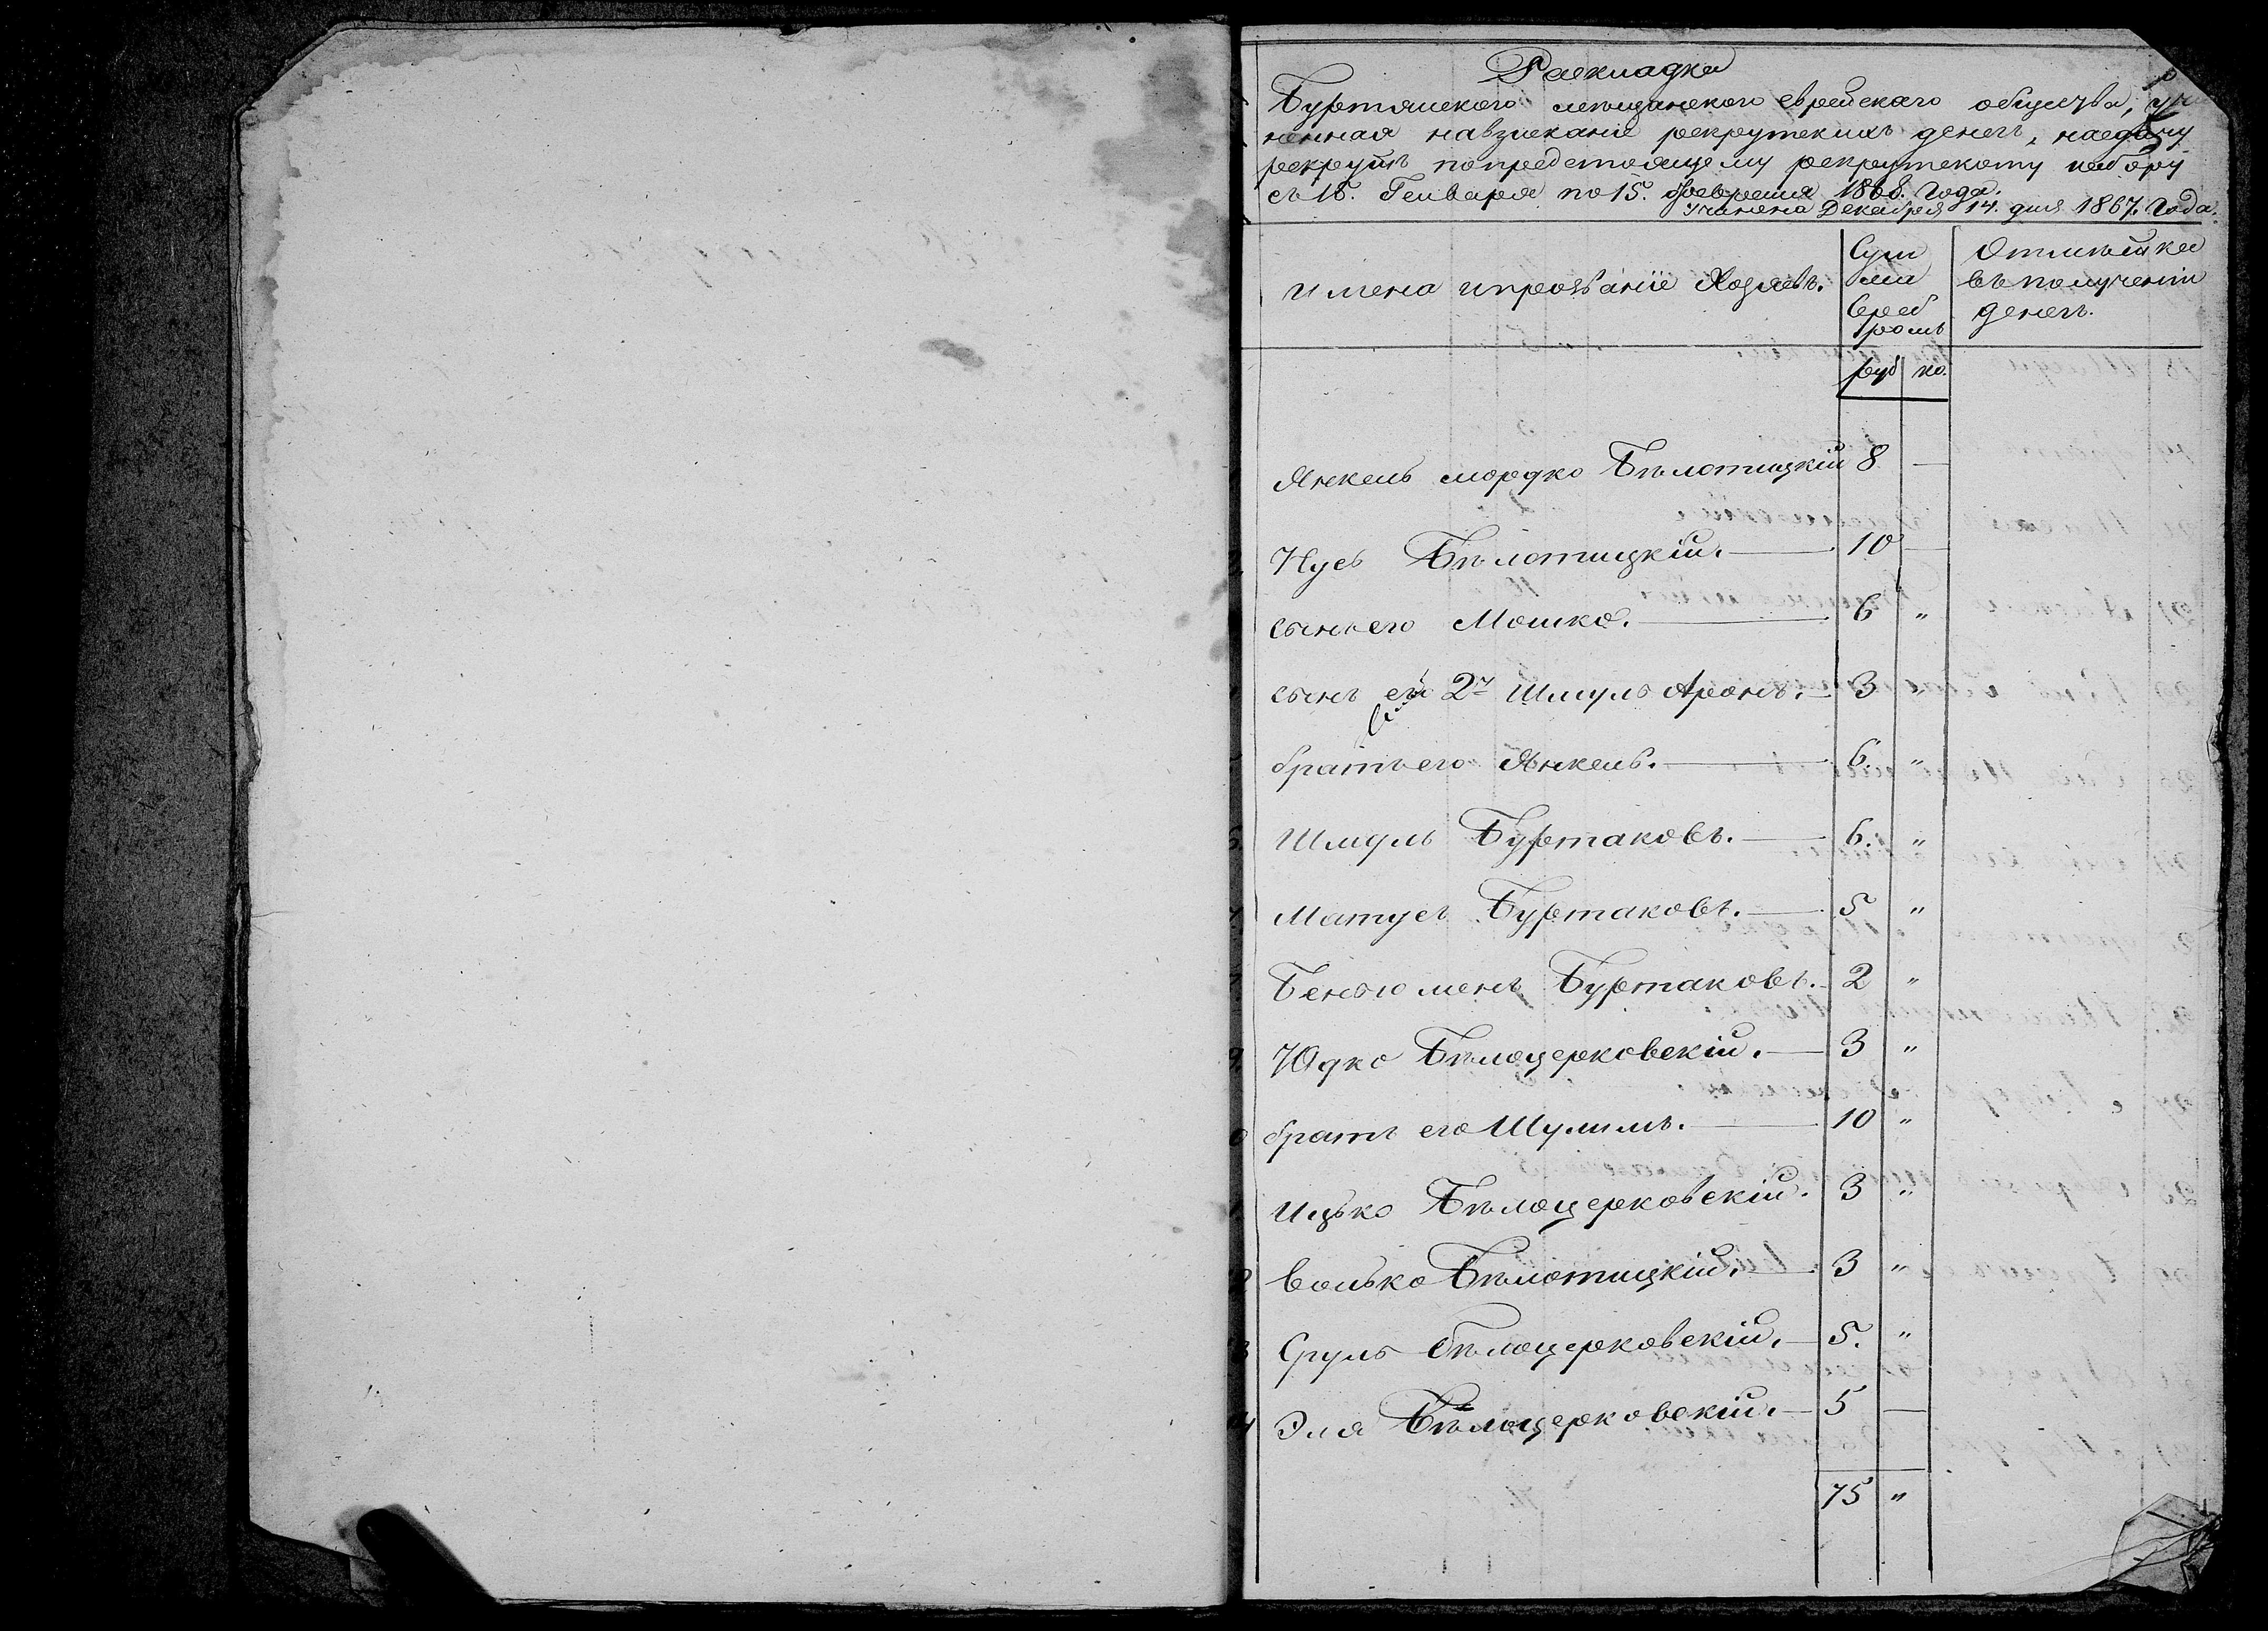 Раскладка
Буртянского мѣщанскаго еврейскаго общества, учи
ненная навзисканіе рекрутскихъ денегъ, насдачу
рекрутъ попредстоящему рекрутскому набору
съ 15. Генваря по 15. февраля 1868. Года.
Учинена Декабря 14. дня 1867. Года.
Имена ипрозваніе Хозяевъ.
Сум
ма
Сереб
ромъ
Отмѣтка
въ полученіи
денегъ.
руб ко.
Янкель мордко Бѣлотицкій 8 —
Нусь Бѣлотицкій. — 10 —
сынъ его Мошко. — 6 "
сынъ его 2й Шмуль Аронъ. — 3 "
братъ его Янкель. — 6. "
6. Шмуль Буртаковъ. — 6. "
7. Матусъ Буртаковъ. — 5 "
7. Беньюменъ Буртаковъ. — 2 "
9. Юдко Бѣлоцерковскій. — 3 "
0 братъ его Шулимъ. — 10 "
1 Ицько Бѣлоцерковскій. 3 "
2 Волько Бѣлотицкій. — 3 "
3 Сруль Бѣлоцерковскій. — 5. "
4 Эля Бѣлоцерковскій. — 5 —
75 "